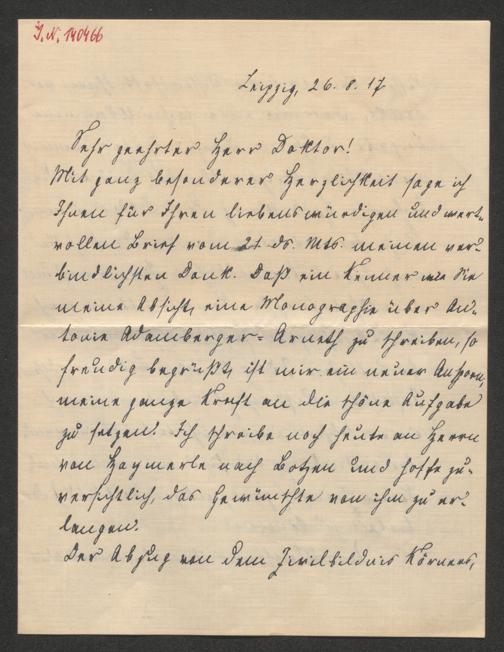 J. N. 140466
Leipzig, 26. 8. 17
Sehr geehrter Herr Doktor!
Mit ganz besonderer Herzlichkeit sage ich
Ihnen für Ihren liebenswürdigen und wert-
vollen Brief vom 21. ds. Mts. meinen ver-
bindlichsten Dank. Daß ein Kenner wie Sie
meine Absicht, eine Monographie über An-
tonie Adamberger=Arneth zu schreiben, so
freudig begrüßt, ist mir ein neuer Ansporn,
meine ganze Kraft an die schöne Aufgabe
zu setzen. Ich schreibe noch heute an Herrn
von Haymerle nach Botzen und hoffe zu-
versichtlich, das Gewünschte von ihm zu er-
langen.
Der Abzug von dem Zivilbildnis Körners,